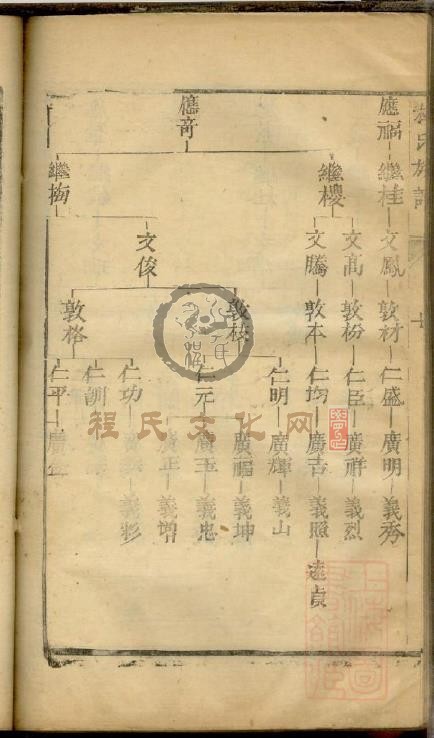 氏族譜
應福 繼桂 文鳳 敦材 仁盛 廣明 義秀
文高 敦份 仁臣 廣祥 義烈
繼樱 文騰 敦本 仁均 廣吉 義照 遠貞
仁明 廣輝 義山
敦 廣福 義坤
應奇 仁元 廣玉 義忠
文俊 廣正 義
仁功 義彩
敦格 仁訓
繼梅 仁平 廣
程氏文化网